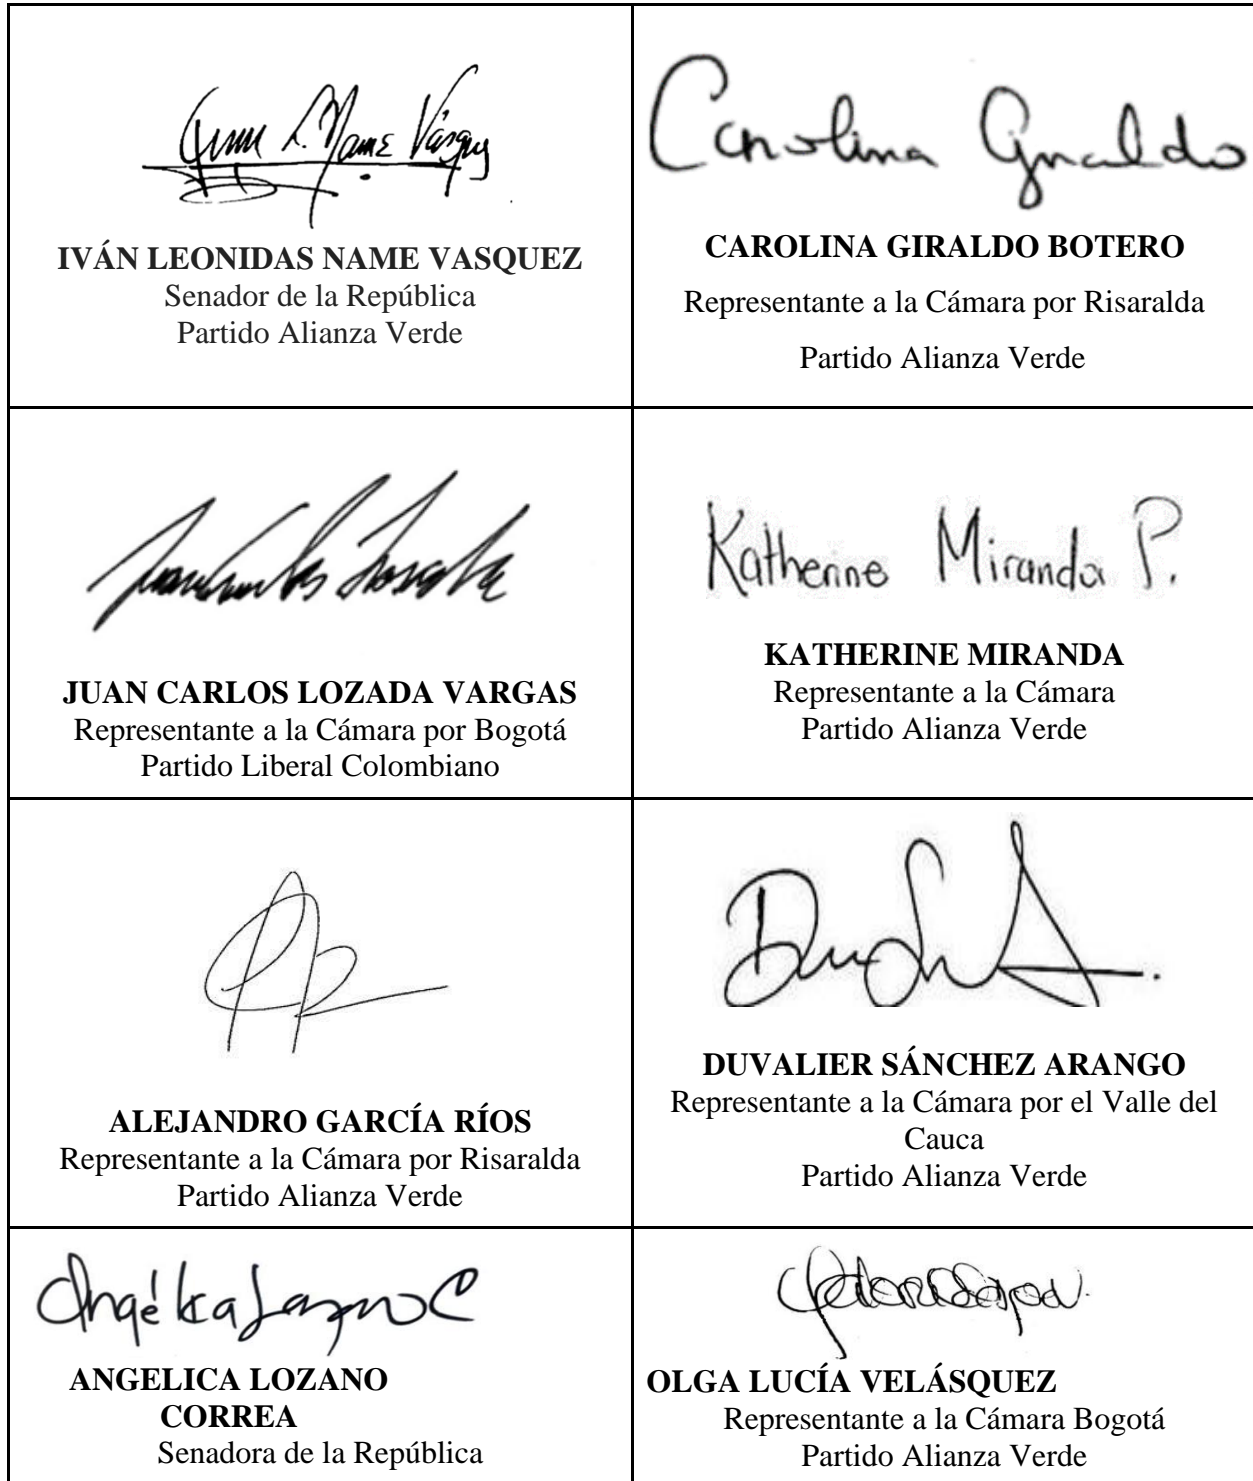 Ivan L. Name Vásquez
IVÁN LEONIDAS NAME VASQUEZ
Senador de la República
Partido Alianza Verde
Carolina Giraldo
CAROLINA GIRALDO BOTERO
Representante a la Cámara por Risaralda
Partido Alianza Verde
Juan Carlos Lozada
JUAN CARLOS LOZADA VARGAS
Representante a la Cámara por Bogotá
Partido Liberal Colombiano
Katherine Miranda P.
KATHERINE MIRANDA
Representante a la Cámara
Partido Alianza Verde
ALEJANDRO GARCÍA RÍOS
Representante a la Cámara por Risaralda
Partido Alianza Verde
DUVALIER SÁNCHEZ ARANGO
Representante a la Cámara por el Valle del
Cauca
Partido Alianza Verde
Angélica Lozano C
ANGELICA LOZANO
CORREA
Senadora de la República
OLGA LUCÍA VELÁSQUEZ
Representante a la Cámara Bogotá
Partido Alianza Verde